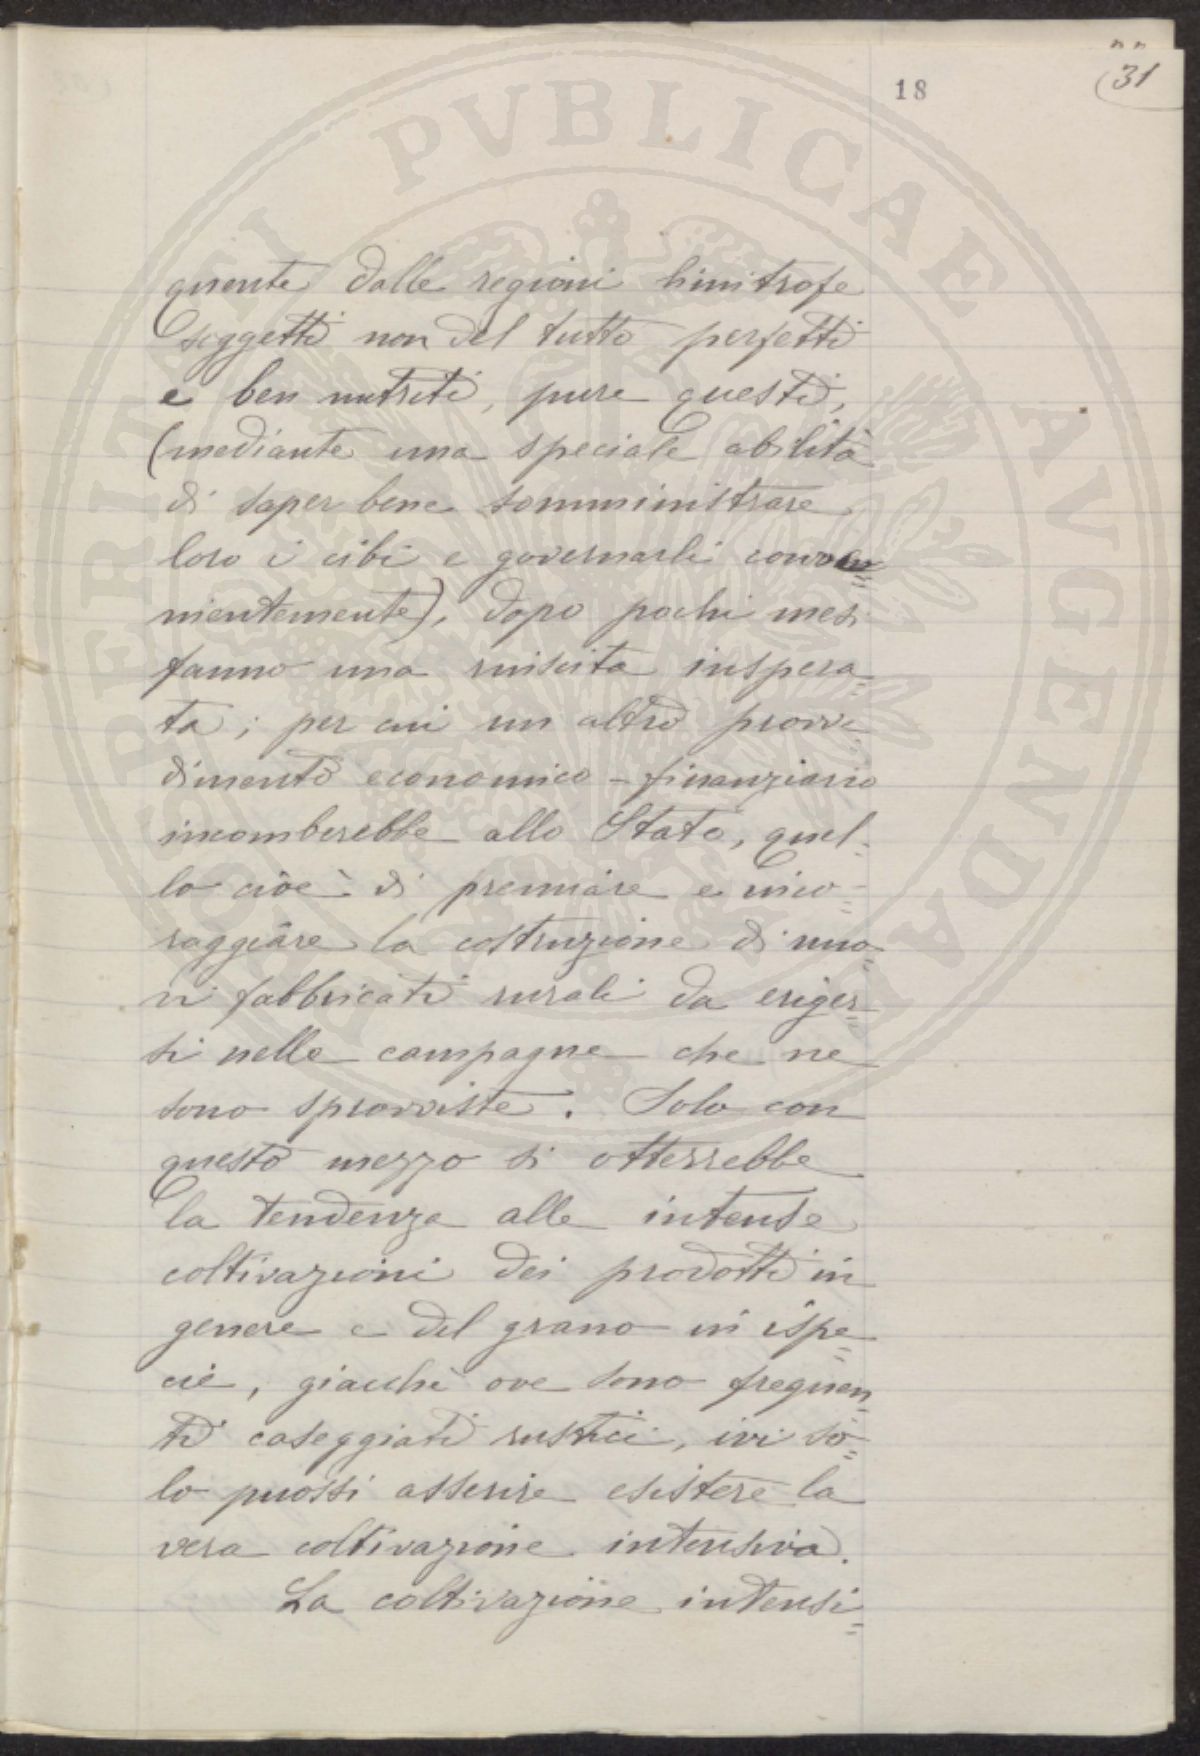 18
31
PROSPERITATI PVBLICAE AVGENDAE
quente dalle regioni limitrofe
soggetti non del tutto perfetti
e ben nutriti, pure questi,
(mediante una speciale abilità
di saper bene somministrare
loro i cibi e governarli conve=
nientemente), dopo pochi mesi
fanno una riuscita inspera=
ta; per cui un altro provve
dimento economico-finanziario
incomberebbe allo Stato, quel=
lo cioè di premiare e inco=
raggiare la costruzione di nuo=
vi fabbricati rurali da eriger=
si nelle campagne che ne
sono sprovviste. Solo con
questo mezzo si otterrebbe
la tendenza alle intense
coltivazioni dei prodotti in
genere e del grano in ispe=
cie, giacchè ove sono frequen=
ti caseggiati rustici, ivi so=
lo puossi asserire esistere la
vera coltivazione intensiva.
La coltivazione intensi=